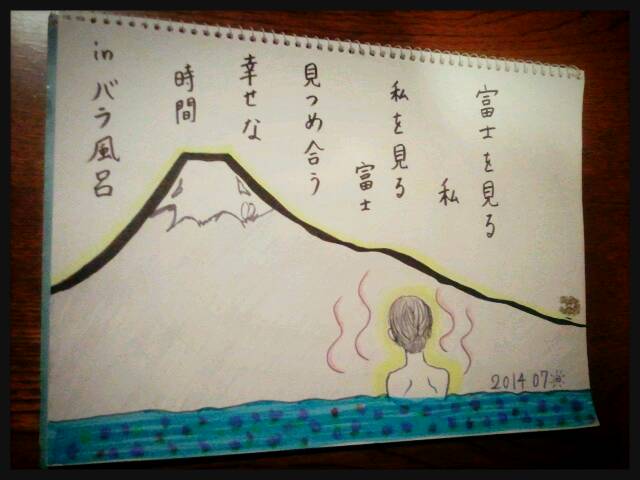 富士を見る
私
私を見る
富士
見つめ合う
幸せな
時間
in バラ風呂
2014 07